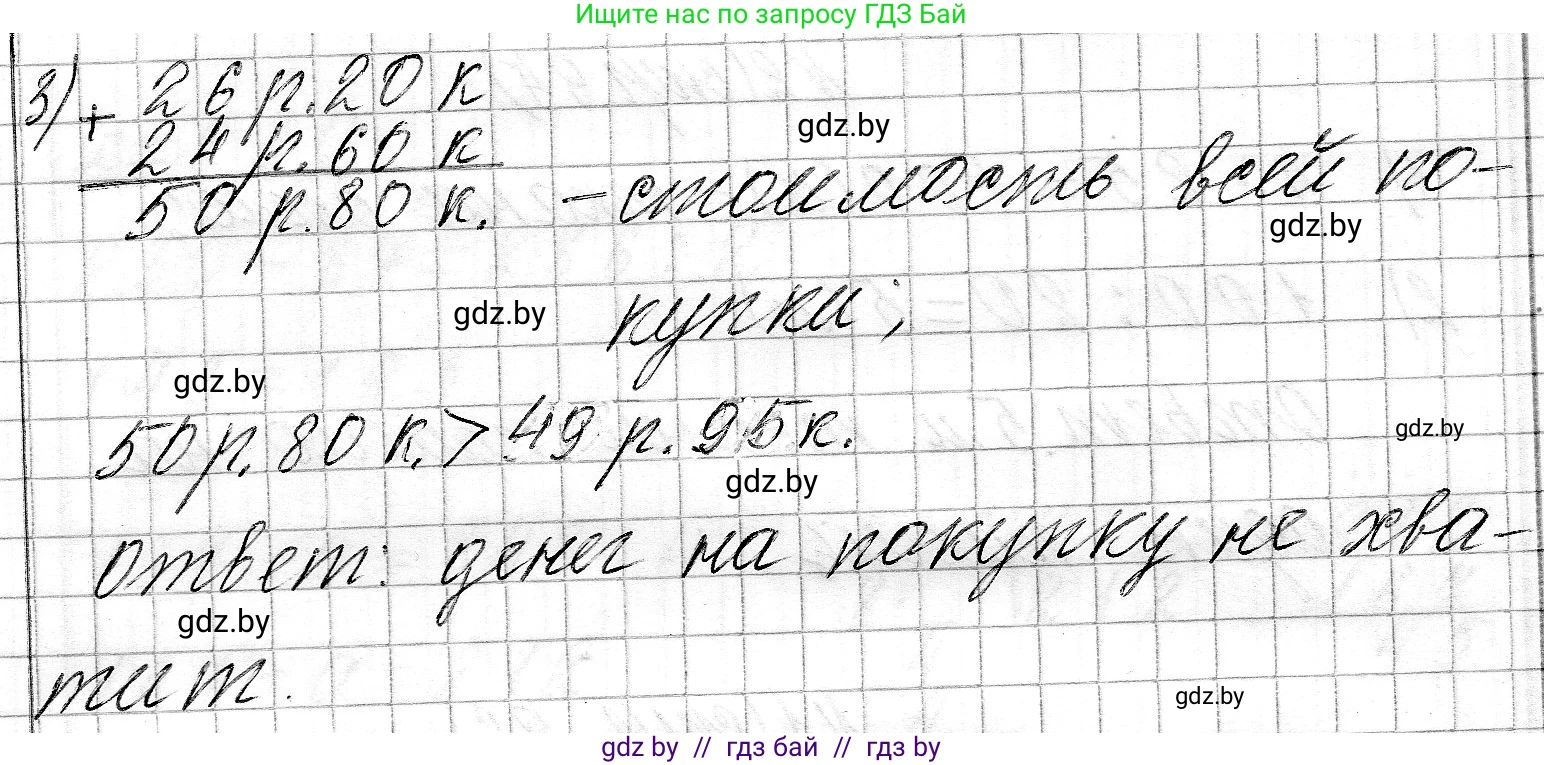 Ищите нас по запросу ГДЗ Бай
3) + 26 р. 20 к
24 р. 60 к
gdz.by
50 р. 80 к. – стоимость всей по-
gdz.by
купки;
gdz.by
gdz.by
50 р. 80 к. > 49 р. 95 к.
gdz.by
gdz.by
ответ: денег на покупку не хва-
gdz.by
тит.
gdz.by
gdz by // гдз бай // гдз by